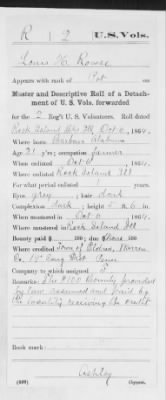 R 2 U.S. Vols.
Louis H. Rowse
Appears with rank of Pvt on
Muster and Descriptive Roll of a Detach-
ment of U. S. Vols. forwarded
for the 2 Reg't U. S. Volunteers. Roll dated
Rock Island Bks Ill Oct 6, 1864.
Where born Barbour Alabama
Age 21 y'rs; occupation farmer
When enlisted Oct 6, 1864.
Where enlisted Rock Island Ill
For what period enlisted years.
Eyes grey; hair dark
Complexion dark; height 5 ft. 6 in.
When mustered in Oct 6, 1864.
Where mustered in Rock Island Ill
Bounty paid $ 100; due $ 100
Where credited Town of Eldred, Warren
Co. 19" Cong Dist Penn
Company to which assigned
Remarks: The $100 bounty provided
by law assumed and paid by
the locality receiving the credit
Book mark:
Ashley
Copyist.